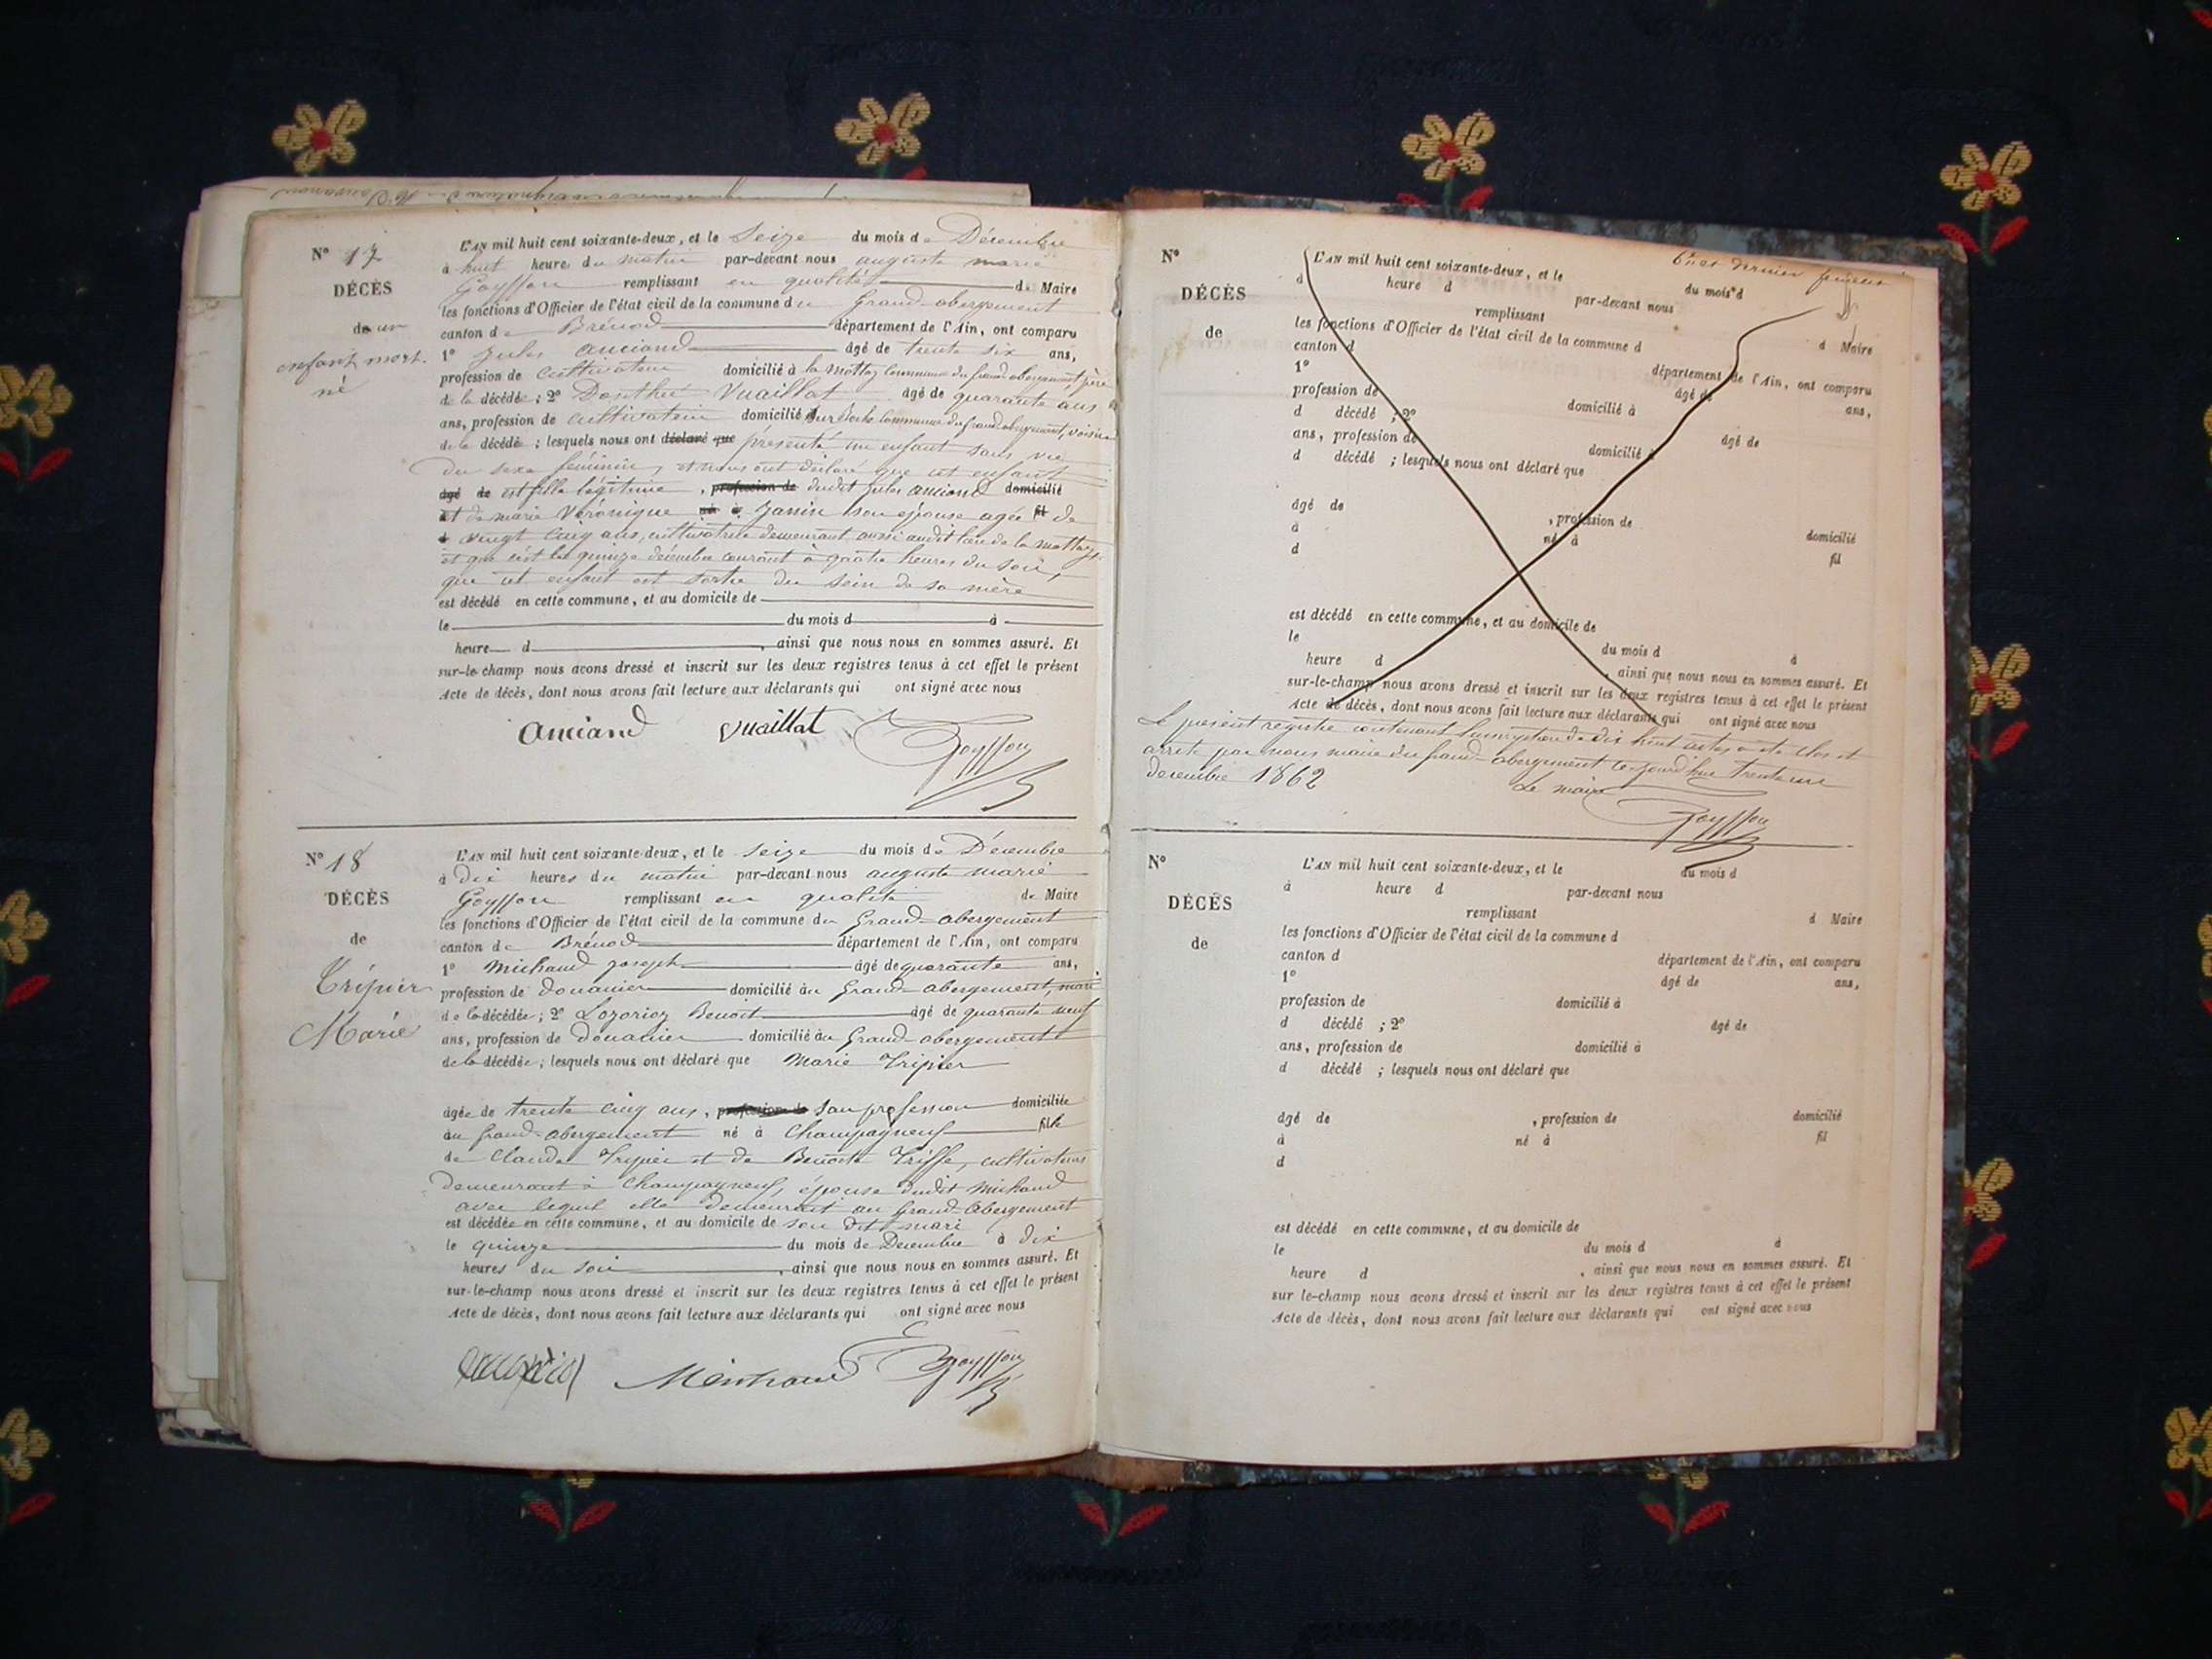 N° 17
DÉCÈS
de un
enfant mort-
né
L'AN mil huit cent soixante-deux, et le Seize du mois de Décembre
à huit heure du matin par-devant nous auguste marie
Goyffon remplissant en qualité de Maire
les fonctions d'Officier de l'état civil de la commune du Grand-abergement
canton de Brénod département de l'Ain, ont comparu
1° Jules anciand âgé de trente six ans,
profession de cultivateur domicilié à la mottaz commune du grand abergement, père
de la décédé ; 2° Dosithé Vuaillat âgé de quarante ans
ans, profession de cultivateur domicilié commune du grand abergement, voisin
de la décédé ; lesquels nous ont déclaré que présenté un enfant sans vie
du sexe féminin, et nous ont déclaré que cet enfant
âgé de est fille légitime, profession de dudit Jules anciand domicilié
et de marie Véronique né à Jannin son épouse agée fil de
vingt cinq ans, cultivatrice demeurant aussi audit lieu de la mottaz
et que c'est le quinze décembre courant à quatre heures du soir,
que cet enfant est sortie du sein de sa mère
est décédé en cette commune, et au domicile de
le du mois d à
heure d , ainsi que nous nous en sommes assuré. Et
sur-le-champ nous avons dressé et inscrit sur les deux registres tenus à cet effet le présent
Acte de décès, dont nous avons fait lecture aux déclarants qui ont signé avec nous
Anciand Vuaillat Goyffon
N° 18
DÉCÈS
de
Tripier
Marie
L'AN mil huit cent soixante-deux, et le seize du mois de Décembre
à dix heures du matin par-devant nous auguste marie
Goyffon remplissant en qualité de Maire
les fonctions d'Officier de l'état civil de la commune du Grand-abergement
canton de Brénod département de l'Ain, ont comparu
1° Michaud joseph âgé de quarante ans,
profession de douanier domicilié au Grand-abergement, mari
de la décédée ; 2° Benoit âgé de quarante neuf
ans, profession de douanier domicilié au Grand-abergement
de la décédée ; lesquels nous ont déclaré que Marie Tripier
âgée de trente cinq ans, profession de sans profession domiciliée
au grand-abergement né à Champagneux fille
de Claude Tripier et de Benoite Triffe, cultivateurs
demeurant à Champagneux, épouse dudit Michaud
avec lequel elle demeurait au Grand-Abergement
est décédée en cette commune, et au domicile de son dit mari
le quinze du mois de Decembre à dix
heures du soir , ainsi que nous nous en sommes assuré. Et
sur-le-champ nous avons dressé et inscrit sur les deux registres tenus à cet effet le présent
Acte de décès, dont nous avons fait lecture aux déclarants qui ont signé avec nous
Michaud Goyffon
et dernier feuillet
N°
DÉCÈS
de
L'AN mil huit cent soixante-deux, et le du mois d
à heure d par-devant nous
remplissant d Maire
les fonctions d'Officier de l'état civil de la commune d
canton d département de l'Ain, ont comparu
1° âgé de ans,
profession de domicilié à
d décédé ; 2° âgé de
ans, profession de domicilié à
d décédé ; lesquels nous ont déclaré que
âgé de , profession de domicilié
à né à fil
d
est décédé en cette commune, et au domicile de
le du mois d à
heure d , ainsi que nous nous en sommes assuré. Et
sur-le-champ nous avons dressé et inscrit sur les deux registres tenus à cet effet le présent
Acte de décès, dont nous avons fait lecture aux déclarants qui ont signé avec nous
Le présent registre contenant l'inscription de dix huit actes a été clos et
arrêté par nous maire du grand-abergement ce jourd'hui trente un
decembre 1862
Le maire
Goyffon
N°
DÉCÈS
de
L'AN mil huit cent soixante-deux, et le du mois d
à heure d par-devant nous
remplissant d Maire
les fonctions d'Officier de l'état civil de la commune d
canton d département de l'Ain, ont comparu
1° âgé de ans,
profession de domicilié à
d décédé ; 2° âgé de
ans, profession de domicilié à
d décédé ; lesquels nous ont déclaré que
âgé de , profession de domicilié
à né à fil
d
est décédé en cette commune, et au domicile de
le du mois d à
heure d , ainsi que nous nous en sommes assuré. Et
sur le-champ nous avons dressé et inscrit sur les deux registres tenus à cet effet le présent
Acte de décès, dont nous avons fait lecture aux déclarants qui ont signé avec nous